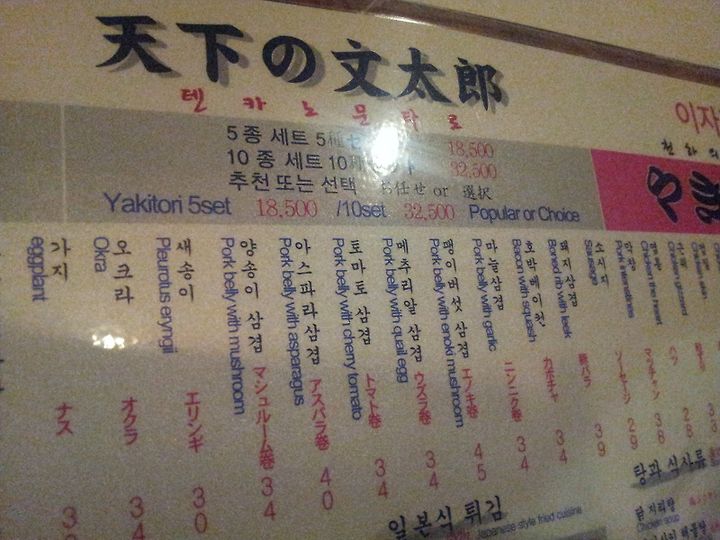 天下の文太郎
텐 카 노 문 타 로
5 종 세트 5種
18,500
10 종 세트 10種
32,500
추천 또는 선택 お任せ or 選択
Yakitori 5set 18,500 /10set 32,500 Popular or Choice
이자
가지
eggplant
ナス
오크라
Okra
オクラ
새송이
Pleurotus eryngii
エリンギ
30
양송이 삼겹
Pork belly with mushroom
マシュルーム巻
34
아스파라 삼겹
Pork belly with asparagus
アスパラ巻
40
토마토 삼겹
Pork belly with cherry tomato
トマト巻
34
메추리알 삼겹
Pork belly with quail egg
ウズラ巻
34
팽이버섯 삼겹
Pork belly with enoki mushroom
エノキ巻
45
마늘삼겹
Pork belly with garlic
ニンニク巻
34
호박베이컨
Bacon with squash
カボチャ
34
돼지삼겹
Boned rib with leek
豚バラ
39
소시지
Sausage
ソーセージ
29
막창
Pork intestines
マッチャン
38
염통
Chicken the heart
ハツ
28
Chicken gizzard
탕과 식사류
닭 지리탕
Chicken soup
일본식 튀김
Japanese style fried cuisine